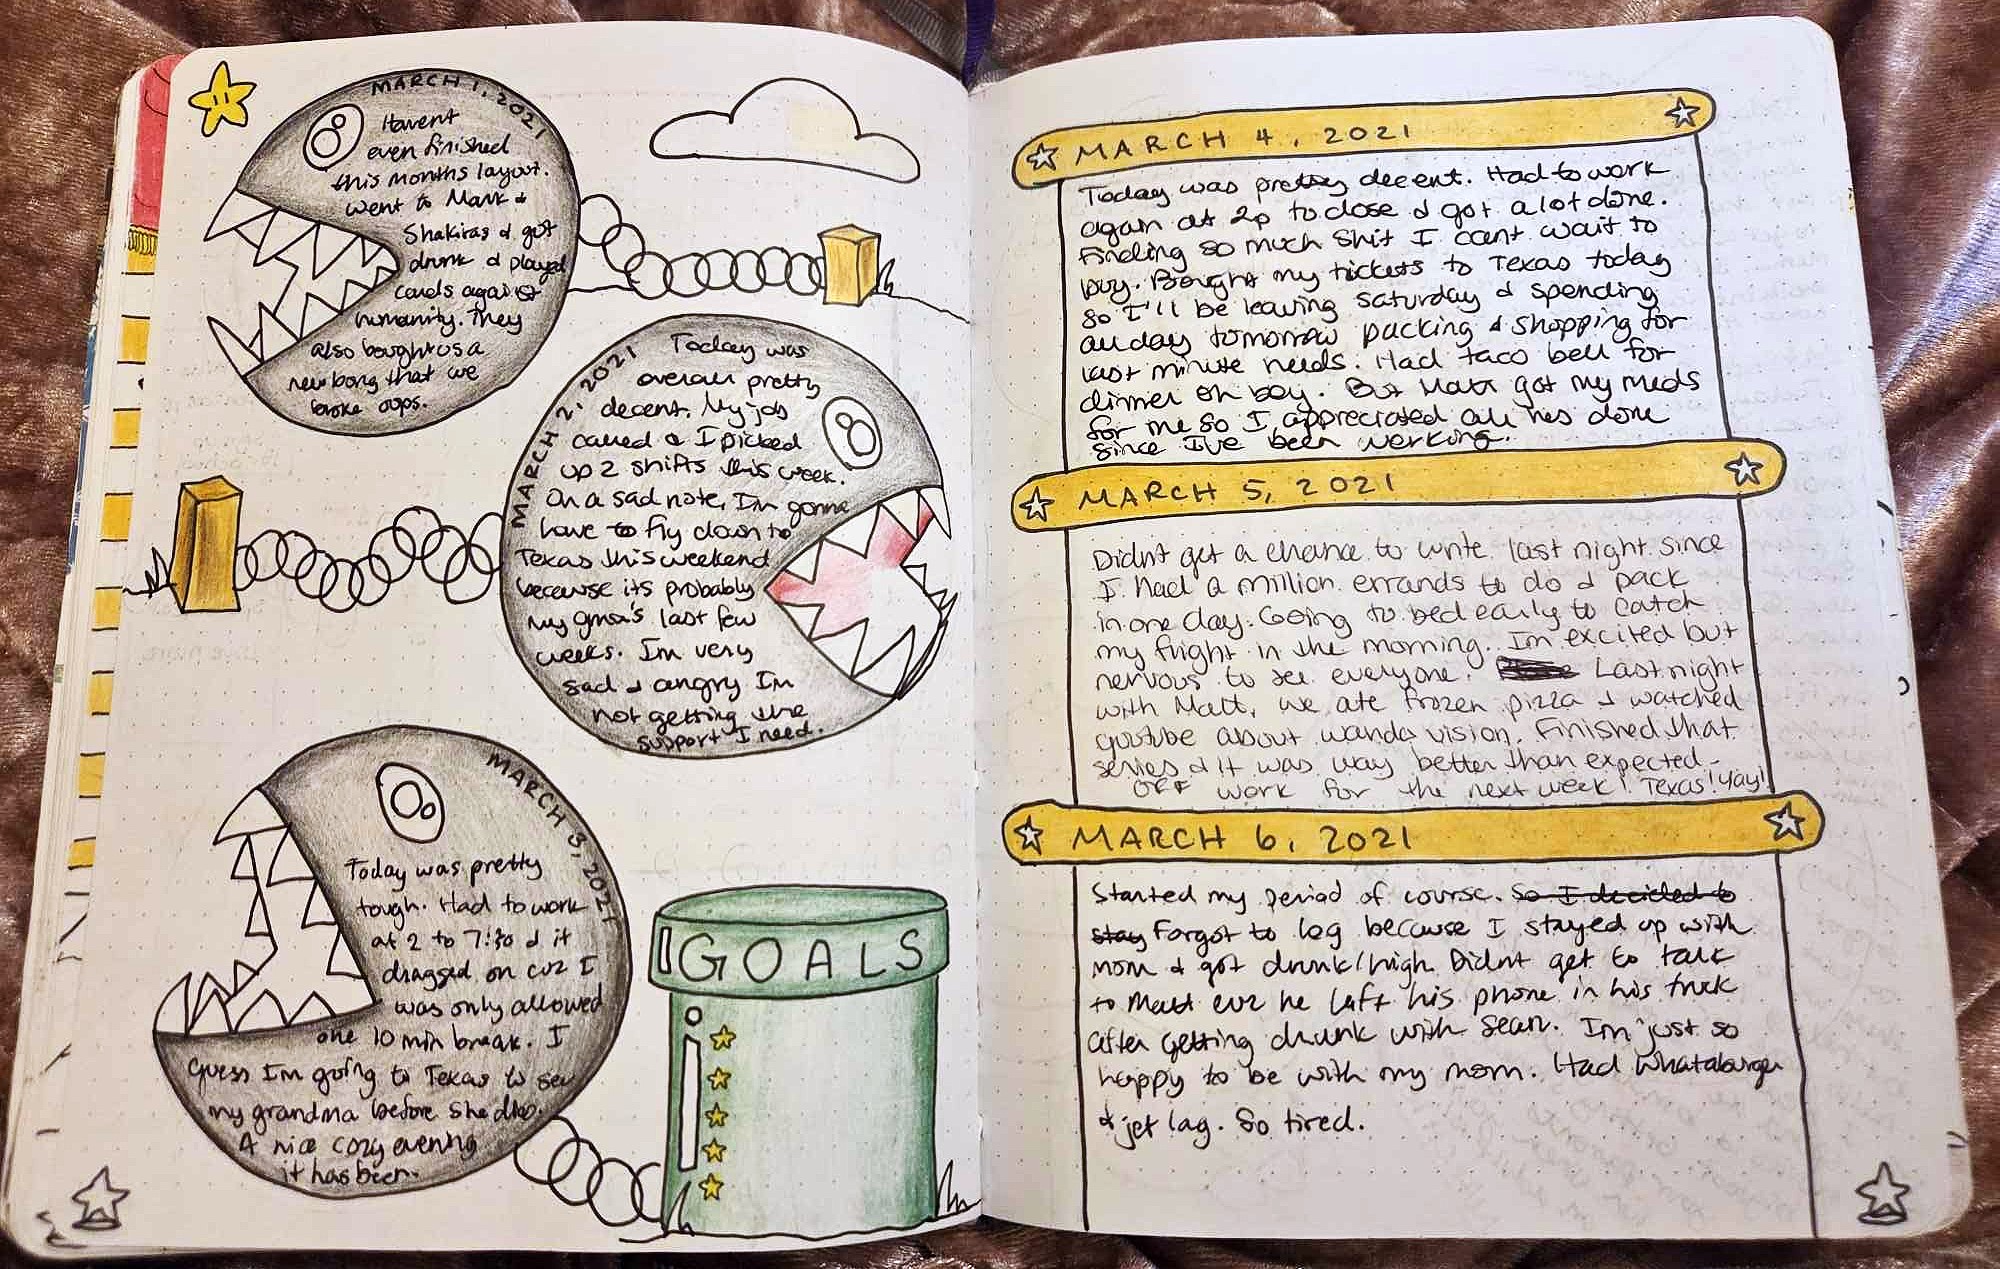 MARCH 1, 2021
Havent
even finished
this months layout.
went to Mark &
Shakiras & got
drunk & played
cards against
humanity. They
also bought us a
new bong that we
broke oops.
MARCH 2, 2021
Today was
overall pretty
decent. My job
called & I picked
up 2 shifts this week.
On a sad note, Im gonna
have to fly down to
Texas this weekend
because its probably
my gma's last few
weeks. Im very
sad & angry Im
not getting the
support I need.
MARCH 3, 2021
Today was pretty
tough. Had to work
at 2 to 7:30 & it
dragged on cuz I
was only allowed
one 10 min break. I
guess Im going to Texas to see
my grandma before she dies.
A nice cozy evening
it has been.
GOALS
MARCH 4, 2021
Today was pretty decent. Had to work
again at 2p to close & got a lot done.
Finding so much shit I cant wait to
buy. Bought my tickets to Texas today
so I'll be leaving saturday & spending
all day tomorrow packing & shopping for
last minute needs. Had taco bell for
dinner oh boy. But Matt got my meds
for me so I appreciated all hes done
since Ive been working.
MARCH 5, 2021
Didnt get a chance to write last night since
I had a million errands to do & pack
in one day. Going to bed early to catch
my flight in the morning. Im excited but
nervous to see everyone. Last night
with Matt, we ate frozen pizza & watched
youtube about wanda vision. Finished that
series & it was way better than expected.
OFF work for the next week! Texas! Yay!
MARCH 6, 2021
Started my period of course. So I decided to
stay Forgot to log because I stayed up with
mom & got drunk/high. Didnt get to talk
to Matt cuz he left his phone in his truck
after getting drunk with Sean. Im just so
happy to be with my mom. Had Whataburger
& jet lag. So tired.